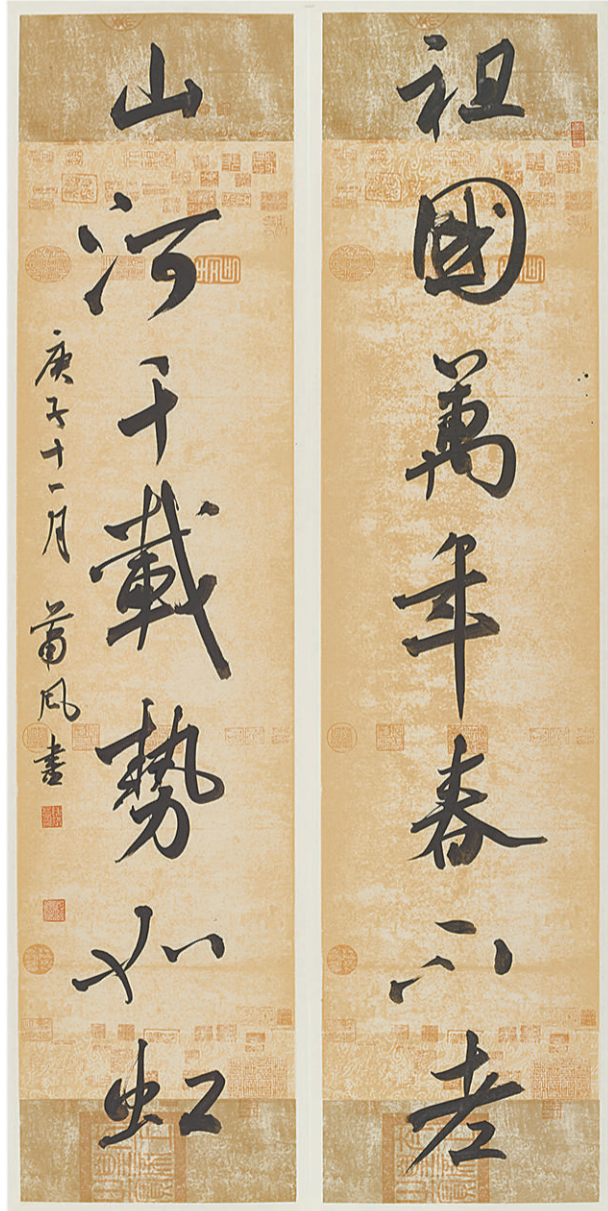 祖國萬年春不老
山河千載勢如虹
庚子十一月 蕾风書